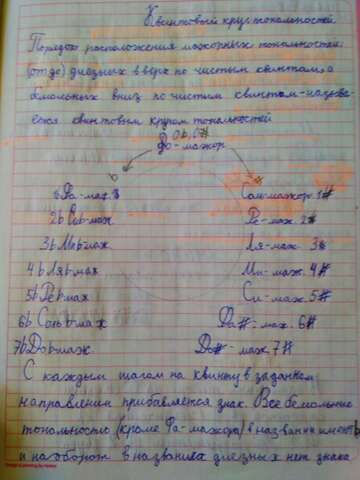 Квинтовый круг тональностей.
Порядок расположения мажорных тональностей
(от до) диезных вверх по чистым квинтам, а
бемольных вниз по чистым квинтам-называ-
ется квинтовым кругом тональностей
0b, 0#
До-мажор
b #
1b Фа-маж. Соль-мажор 1#
2b Сиb-маж Ре-маж. 2#
3b Миb-маж Ля-маж. 3#
4b Ляb-маж Ми-маж. 4#
5b Реb-маж Си-маж. 5#
6b Сольb-маж Фа#-маж. 6#
7b Доb-маж. До#-маж. 7#
С каждым шагом на квинту в заданном
направлении прибавляется знак. Все бемольные
тональности (кроме Фа-мажора) в названии имеют b
и наоборот в названиях диезных нет знака